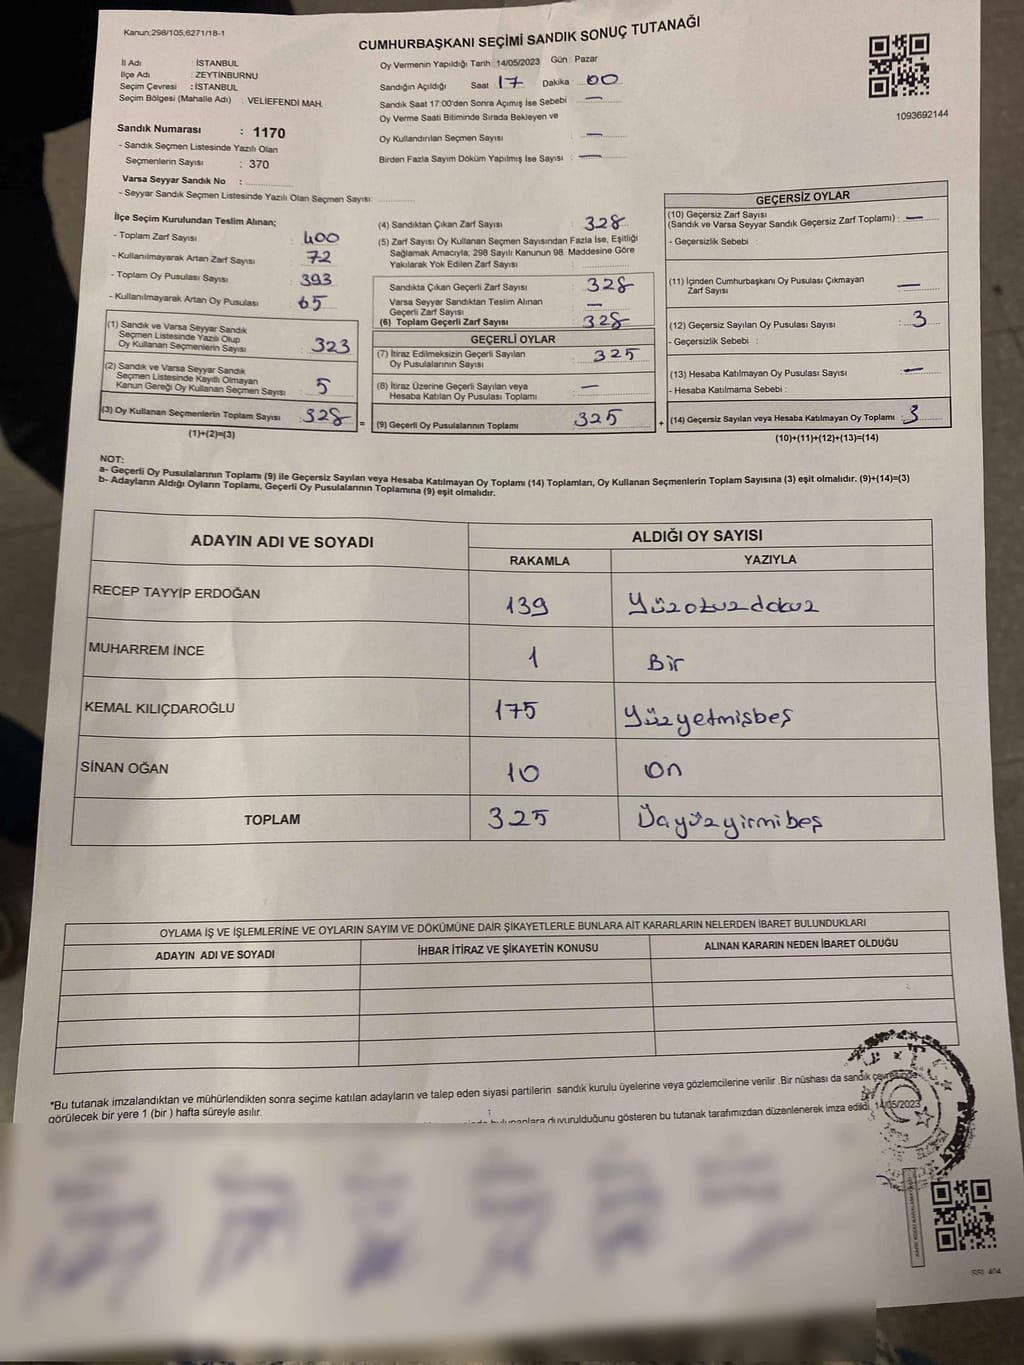 Kanun;298/105,6271/18-1
CUMHURBAŞKANI SEÇİMİ SANDIK SONUÇ TUTANAĞI
İl Adı : İSTANBUL
İlçe Adı : ZEYTİNBURNU
Seçim Çevresi : İSTANBUL
Seçim Bölgesi (Mahalle Adı) : VELİEFENDİ MAH.
Sandık Numarası : 1170
- Sandık Seçmen Listesinde Yazılı Olan
Seçmenlerin Sayısı : 370
Varsa Seyyar Sandık No :
- Seyyar Sandık Seçmen Listesinde Yazılı Olan Seçmen Sayısı:
Oy Vermenin Yapıldığı Tarih :14/05/2023 Gün : Pazar
Sandığın Açıldığı Saat 17 Dakika : 00
Sandık Saat 17:00'den Sonra Açımış İse Sebebi : —
Oy Verme Saati Bitiminde Sırada Bekleyen ve
Oy Kullandırılan Seçmen Sayısı : —
Birden Fazla Sayım Döküm Yapılmış İse Sayısı : —
1093692144
İlçe Seçim Kurulundan Teslim Alınan;
- Toplam Zarf Sayısı : 400
- Kullanılmayarak Artan Zarf Sayısı : 72
- Toplam Oy Pusulası Sayısı : 393
- Kullanılmayarak Artan Oy Pusulası : 65
(1) Sandık ve Varsa Seyyar Sandık
Seçmen Listesinde Yazılı Olup
Oy Kullanan Seçmenlerin Sayısı : 323
(2) Sandık ve Varsa Seyyar Sandık
Seçmen Listesinde Kayıtlı Olmayan
Kanun Gereği Oy Kullanan Seçmen Sayısı : 5
(3) Oy Kullanan Seçmenlerin Toplam Sayısı : 328
(1)+(2)=(3)
(4) Sandıktan Çıkan Zarf Sayısı : 328
(5) Zarf Sayısı Oy Kullanan Seçmen Sayısından Fazla İse, Eşitliği
Sağlamak Amacıyla; 298 Sayılı Kanunun 98. Maddesine Göre
Yakılarak Yok Edilen Zarf Sayısı :
Sandıkta Çıkan Geçerli Zarf Sayısı : 328
Varsa Seyyar Sandıktan Teslim Alınan
Geçerli Zarf Sayısı : —
(6) Toplam Geçerli Zarf Sayısı : 328
GEÇERLİ OYLAR
(7) İtiraz Edilmeksizin Geçerli Sayılan
Oy Pusulalarının Sayısı : 325
(8) İtiraz Üzerine Geçerli Sayılan veya
Hesaba Katılan Oy Pusulası Toplamı : —
(9) Geçerli Oy Pusulalarının Toplamı : 325
GEÇERSİZ OYLAR
(10) Geçersiz Zarf Sayısı
(Sandık ve Varsa Seyyar Sandık Geçersiz Zarf Toplamı) : —
- Geçersizlik Sebebi :
(11) İçinden Cumhurbaşkanı Oy Pusulası Çıkmayan
Zarf Sayısı : —
(12) Geçersiz Sayılan Oy Pusulası Sayısı : 3
- Geçersizlik Sebebi :
(13) Hesaba Katılmayan Oy Pusulası Sayısı : —
- Hesaba Katılmama Sebebi :
(14) Geçersiz Sayılan veya Hesaba Katılmayan Oy Toplamı : 3
(10)+(11)+(12)+(13)=(14)
NOT:
a- Geçerli Oy Pusulalarının Toplamı (9) ile Geçersiz Sayılan veya Hesaba Katılmayan Oy Toplamı (14) Toplamları, Oy Kullanan Seçmenlerin Toplam Sayısına (3) eşit olmalıdır. (9)+(14)=(3)
b- Adayların Aldığı Oyların Toplamı, Geçerli Oy Pusulalarının Toplamına (9) eşit olmalıdır.
ADAYIN ADI VE SOYADI ALDIĞI OY SAYISI
RAKAMLA YAZIYLA
RECEP TAYYİP ERDOĞAN 139 Yüzotuzdokuz
MUHARREM İNCE 1 Bir
KEMAL KILIÇDAROĞLU 175 Yüzyetmişbeş
SİNAN OĞAN 10 On
TOPLAM 325 Üçyüzyirmibeş
OYLAMA İŞ VE İŞLEMLERİNE VE OYLARIN SAYIM VE DÖKÜMÜNE DAİR ŞİKAYETLERLE BUNLARA AİT KARARLARIN NELERDEN İBARET BULUNDUKLARI
ADAYIN ADI VE SOYADI İHBAR İTİRAZ VE ŞİKAYETİN KONUSU ALINAN KARARIN NEDEN İBARET OLDUĞU
*Bu tutanak imzalandıktan ve mühürlendikten sonra seçime katılan adayların ve talep eden siyasi partilerin sandık kurulu üyelerine veya gözlemcilerine verilir .Bir nüshası da sandık çevresinde
görülecek bir yere 1 (bir ) hafta süreyle asılır.
bulunanlara duyurulduğunu gösteren bu tutanak tarafımızdan düzenlenerek imza edildi. 14/05/2023